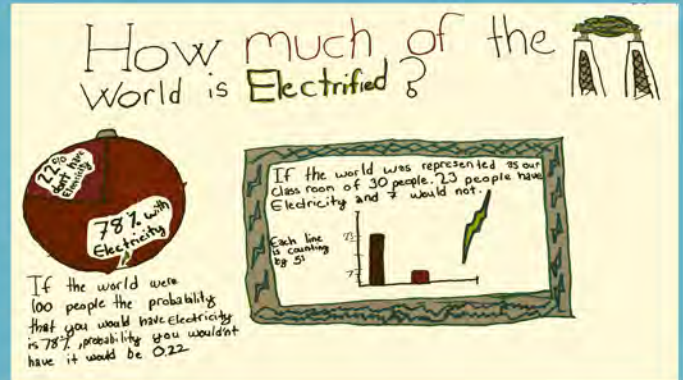 How much of the
World is Electrified?
22%
don't have
Electricity
78% with
Electricity
If the world were
100 people the probability
that you would have Electricity
is 78%, probability you wouldn't
have it would be 0.22
If the world was represented as our
class room of 30 people. 23 people have
Electricity and 7 would not.
Each line
is counting
by 5!
23
7